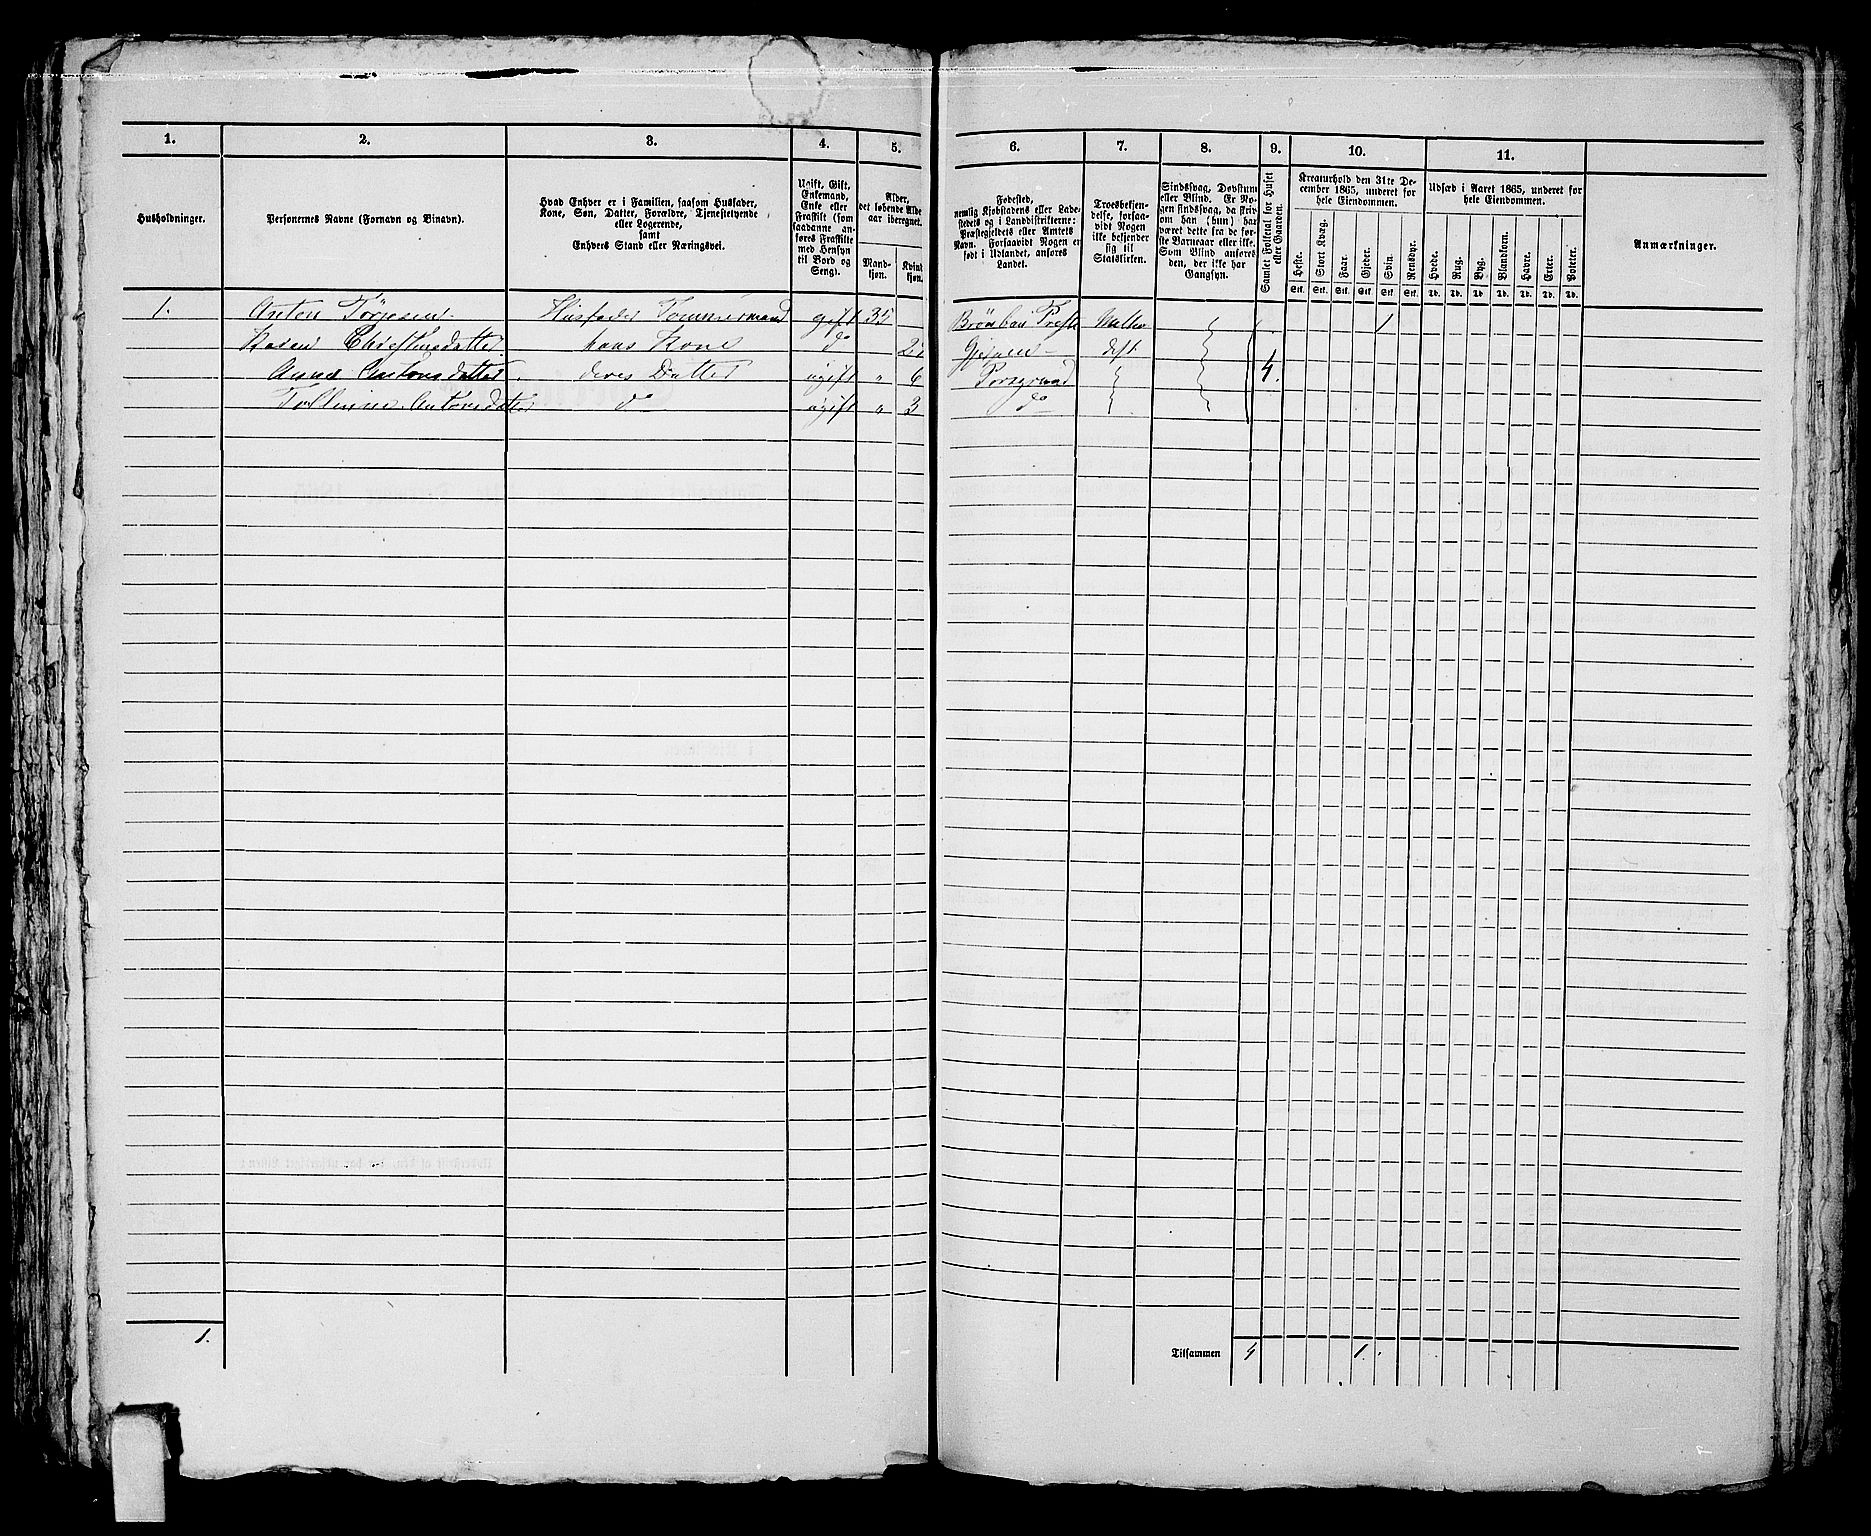 1. 2. 3. 4. 5. 6. 7. 8. 9. 10. 11.
Husholdninger.
Personernes Navne (Fornavn og Binavn).
Hvad Enhver er i Familien, saasom Husfader,
Kone, Søn, Datter, Forældre, Tjenestetyende
eller Logerende,
samt
Enhvers Stand eller Næringsvei.
Ugift, Gift,
Enkemand,
Enke eller
Fraskilt (som
saadanne an-
føres Fraskilte
med Hensyn
til Bord og
Seng).
Alder,
det løbende Alde
aar iberegnet.
Mand-
kjøn.
Kvind
kjøn.
Fødested,
nemlig Kjøbstadens eller Lade-
stedets og i Landdistrikterne:
Præstegjeldets eller Amtets
Navn. Forsaavidt Nogen er
født i Udlandet, anføres
Landet.
Troesbekjen-
delse, forsaa-
vidt Nogen
ikke bekjender
sig til
Statskirken.
Sindssvag, Døvstum
eller Blind. Er No-
gen sindssvag, da skriv
om han (hun) har
været dette fra de før-
ste Barneaar eller ikke.
Som Blind anføres
den, der ikke har
Gangsyn.
Samlet Folketal for Huset
eller Gaarden.
Kreaturhold den 31te De-
cember 1865, underet for
hele Eiendommen.
Heste. Stort Kvæg. Faar. Gjeder. Svin. Rensdyr.
Stk. Stk. Stk. Stk. Stk. Stk.
Udsæd i Aaret 1865, underet for
hele Eiendommen.
Hvede. Rug. Byg. Blandkorn. Havre. Erter. Poteter.
Td. Td. Td. Td. Td. Td. Td.
Anmærkninger.
1. Anton Tørjesen Husfader Tømmermand gift 35 1
Karen Christensdatter hans Kone do Gjerpen
Anne Antonsdatter deres Datter ugift " 6 Porsgrund 4.
Antonsdatter do ugift " 3 do
1.
Tilsammen 4 1.